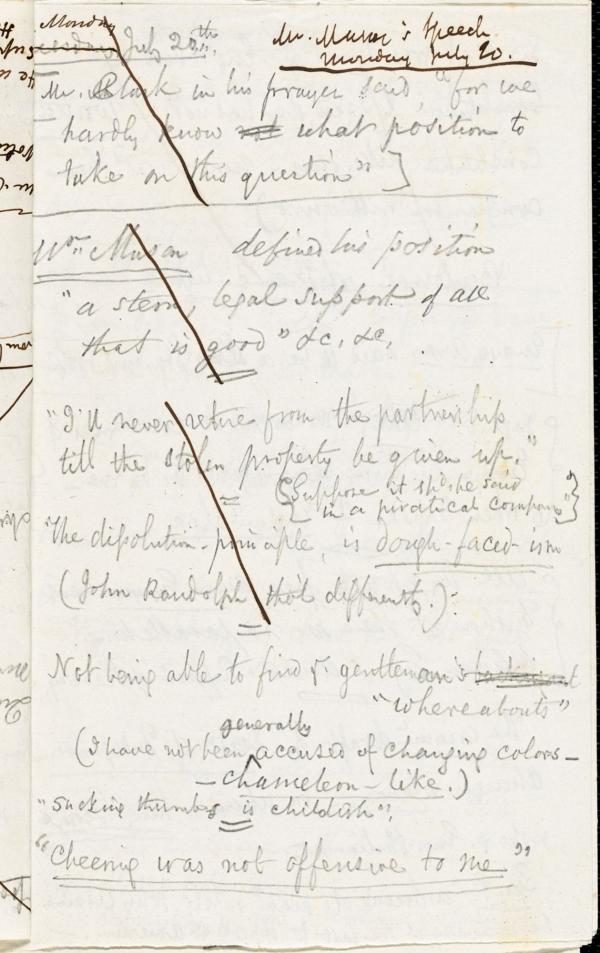 Monday
Tuesday July 20th.
Mr. Munro's Speech
Monday July 20.
Mr. Clark in his prayer said "for we
hardly know not what position to
take on this question"]
defined his position
"a stern, legal support of all
that is good" &c, &c,
"I'll never retire from the partnership
till the stolen property be given up."
{Suppose it shd. be said
in a piratical company"}
"The dissolution-principle, is dough-faced-ism
(John Randolph tho't differently.)-
Not being able to find ye gentleman's
"whereabouts"
generally
(I have not been accused of changing colors-
-chameleon-like.)
"Sucking thumbs is childish".
"Cheering was not offensive to me"